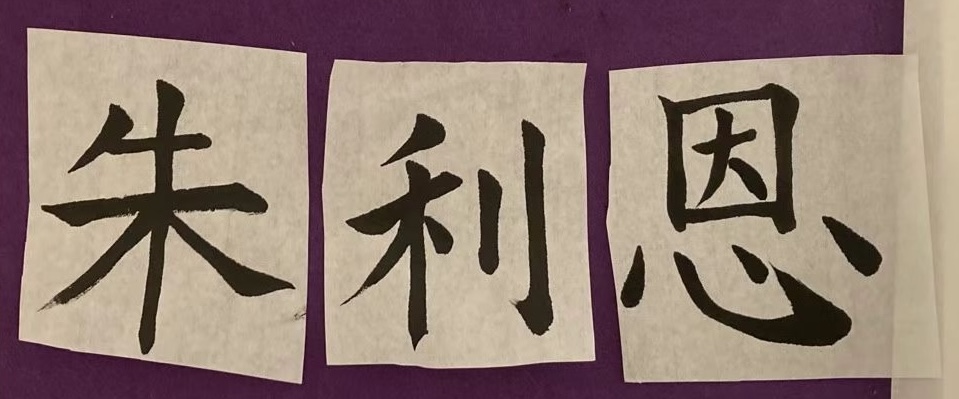 朱利恩